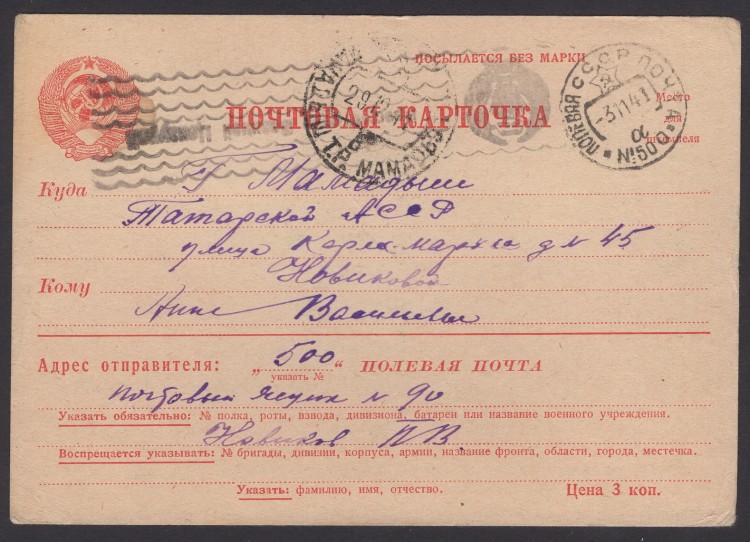 ПОСЫЛАЕТСЯ БЕЗ МАРКИ
ПОЧТОВАЯ КАРТОЧКА
Место
для
СССР ПОЧТА
ПОЛЕВАЯ
-3 11 41
α
№ 500
МАМАДЫШ
Куда г Мамадыш
Татарской АССР
улица Карла-маркса д N 45
Новиковой
Кому
Анне Васильевне
Адрес отправителя: „500“ ПОЛЕВАЯ ПОЧТА
указать №
почтовый ящик N 90
Указать обязательно: № полка, роты, взвода, дивизиона, батареи или название военного учреждения.
Новиков П В
Воспрещается указывать: № бригады, дивизии, корпуса, армии, название фронта, области, города, местечка.
Указать: фамилию, имя, отчество.
Цена 3 коп.